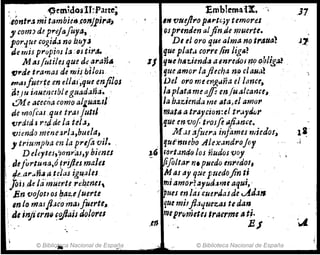 Gemidos II. Parte,
contra mi tambien conspira,
y como de presa suya,
porque cogida no huya
de mis propios la es tira.
Mas sutiles que de araña
vrde tramas de mis bilos
mas fuerte en ellas, que en filos
de su ineuencible guadaña.
Me acecha como alguazil
de moscas que tras sutil
vrdida red de la tela,
viendo menearla, buela,
y triumpha en la presa vil.
Deleytes, honras, y bienes
de fortuna, ò tristes males
de araña a telas iguales
sois de la muerte rebenes,
En vosotros haze fuerte
en lo mas flaco mas fuerte,
de infierno cossais dolores
en
Emblema IX. 37
en vuestro parto; y temores
os prenden al fin de muerte.
De el oro que alma no traua? 17
que plata corre sin liga?
que hazienda a enredos no obliga?
que amor la flecha no claua?
Del oro me engaña el lance,
la plata me asse en su alcance,
la hazienda me ata, el amor
mata a traycion: el traydor
que en vos trofse afiance.
Mas a fuera infames miedos, 18
que nueuo Alexandro soy
cortando los ñudos voy
si soltar no puedo enredos,
Mas ay que puedo sin ti
mi amor? ayudame aqui,
pues en las cuerdas de Adan
que mis flaquezas te dan
me prometes traerme a ti.
Es